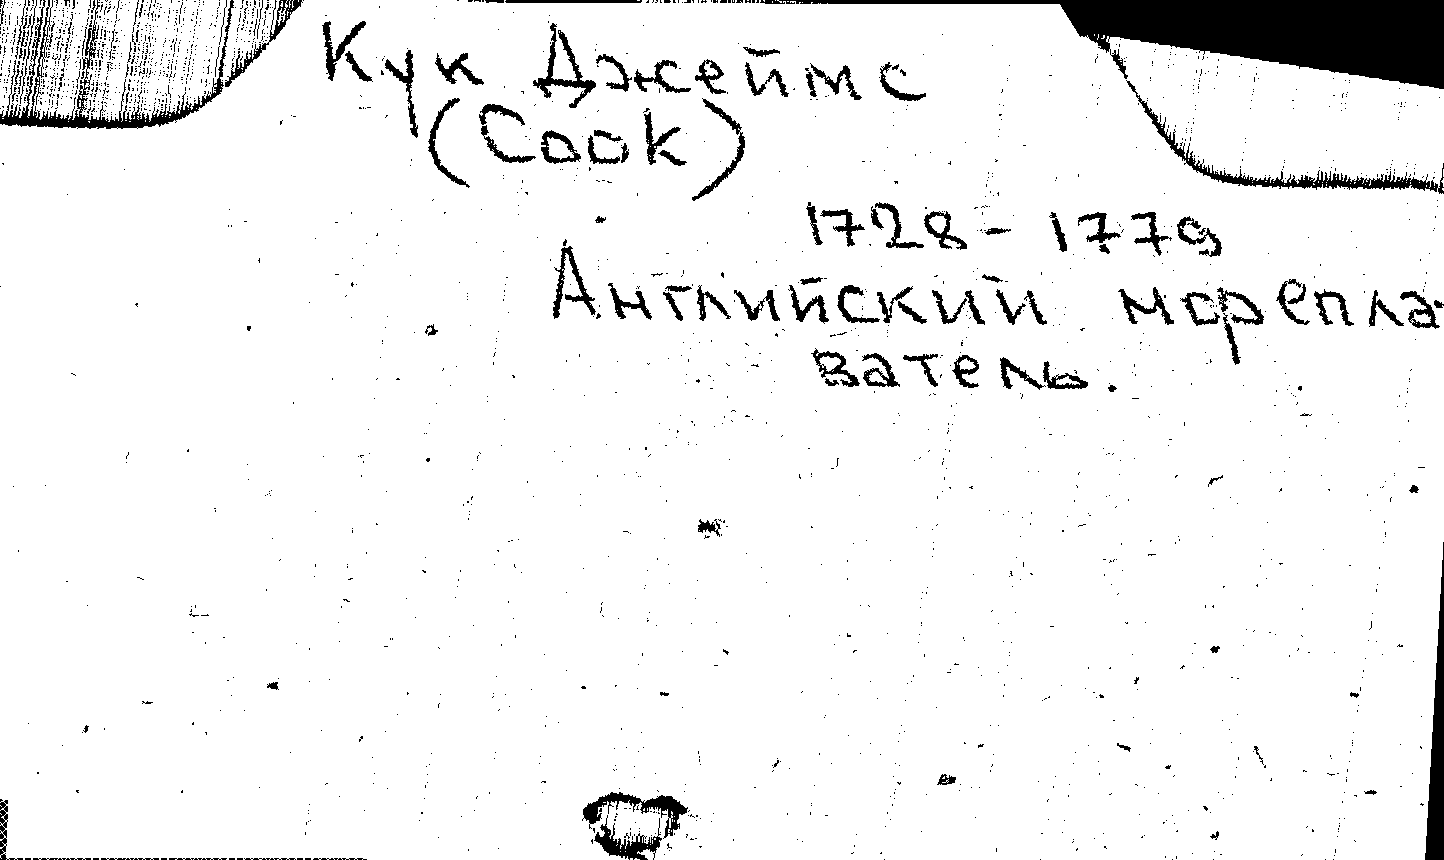 Кук Джеймс
(Cook)
1728 - 1779
Английский морепла-
ватель.